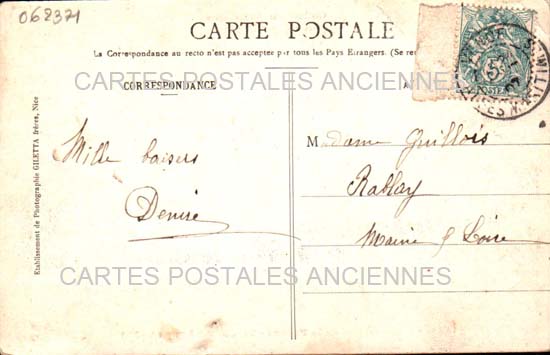 068371
CARTE POSTALE
La Correspondance au recto n'est pas acceptée par tous les Pays Etrangers. (Se re
CARTES POSTALES ANCIENNES
CORRESPONDANCE
A
Mille baisers
Denise
Madame Guillois
Rablay
Maine & Loire
CARTES POSTALES ANCIENNES
Etablissement de Photographie GILETTA frères, Nice